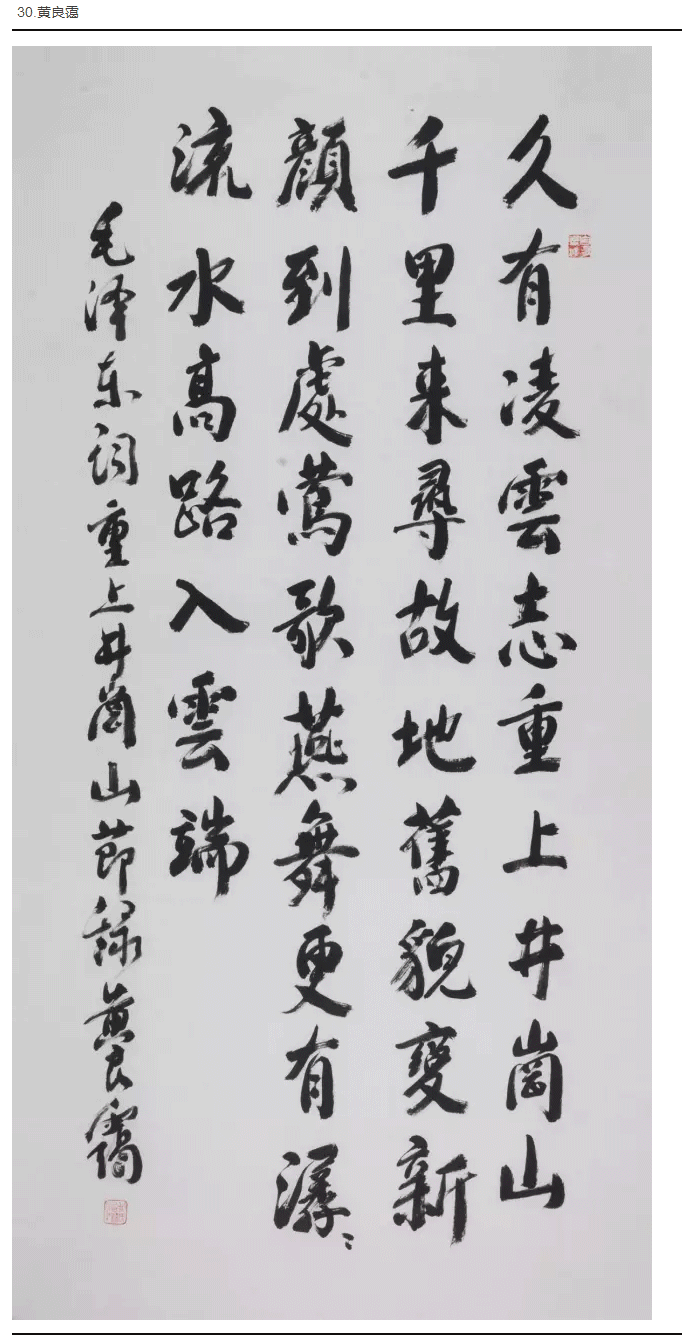 30.黄良霭
久有凌雲志重上井崗山
千里来尋故地舊貌變新
顔到處鶯歌燕舞更有潺〻
流水高路入雲端
毛泽东词重上井崗山節録黄良靄